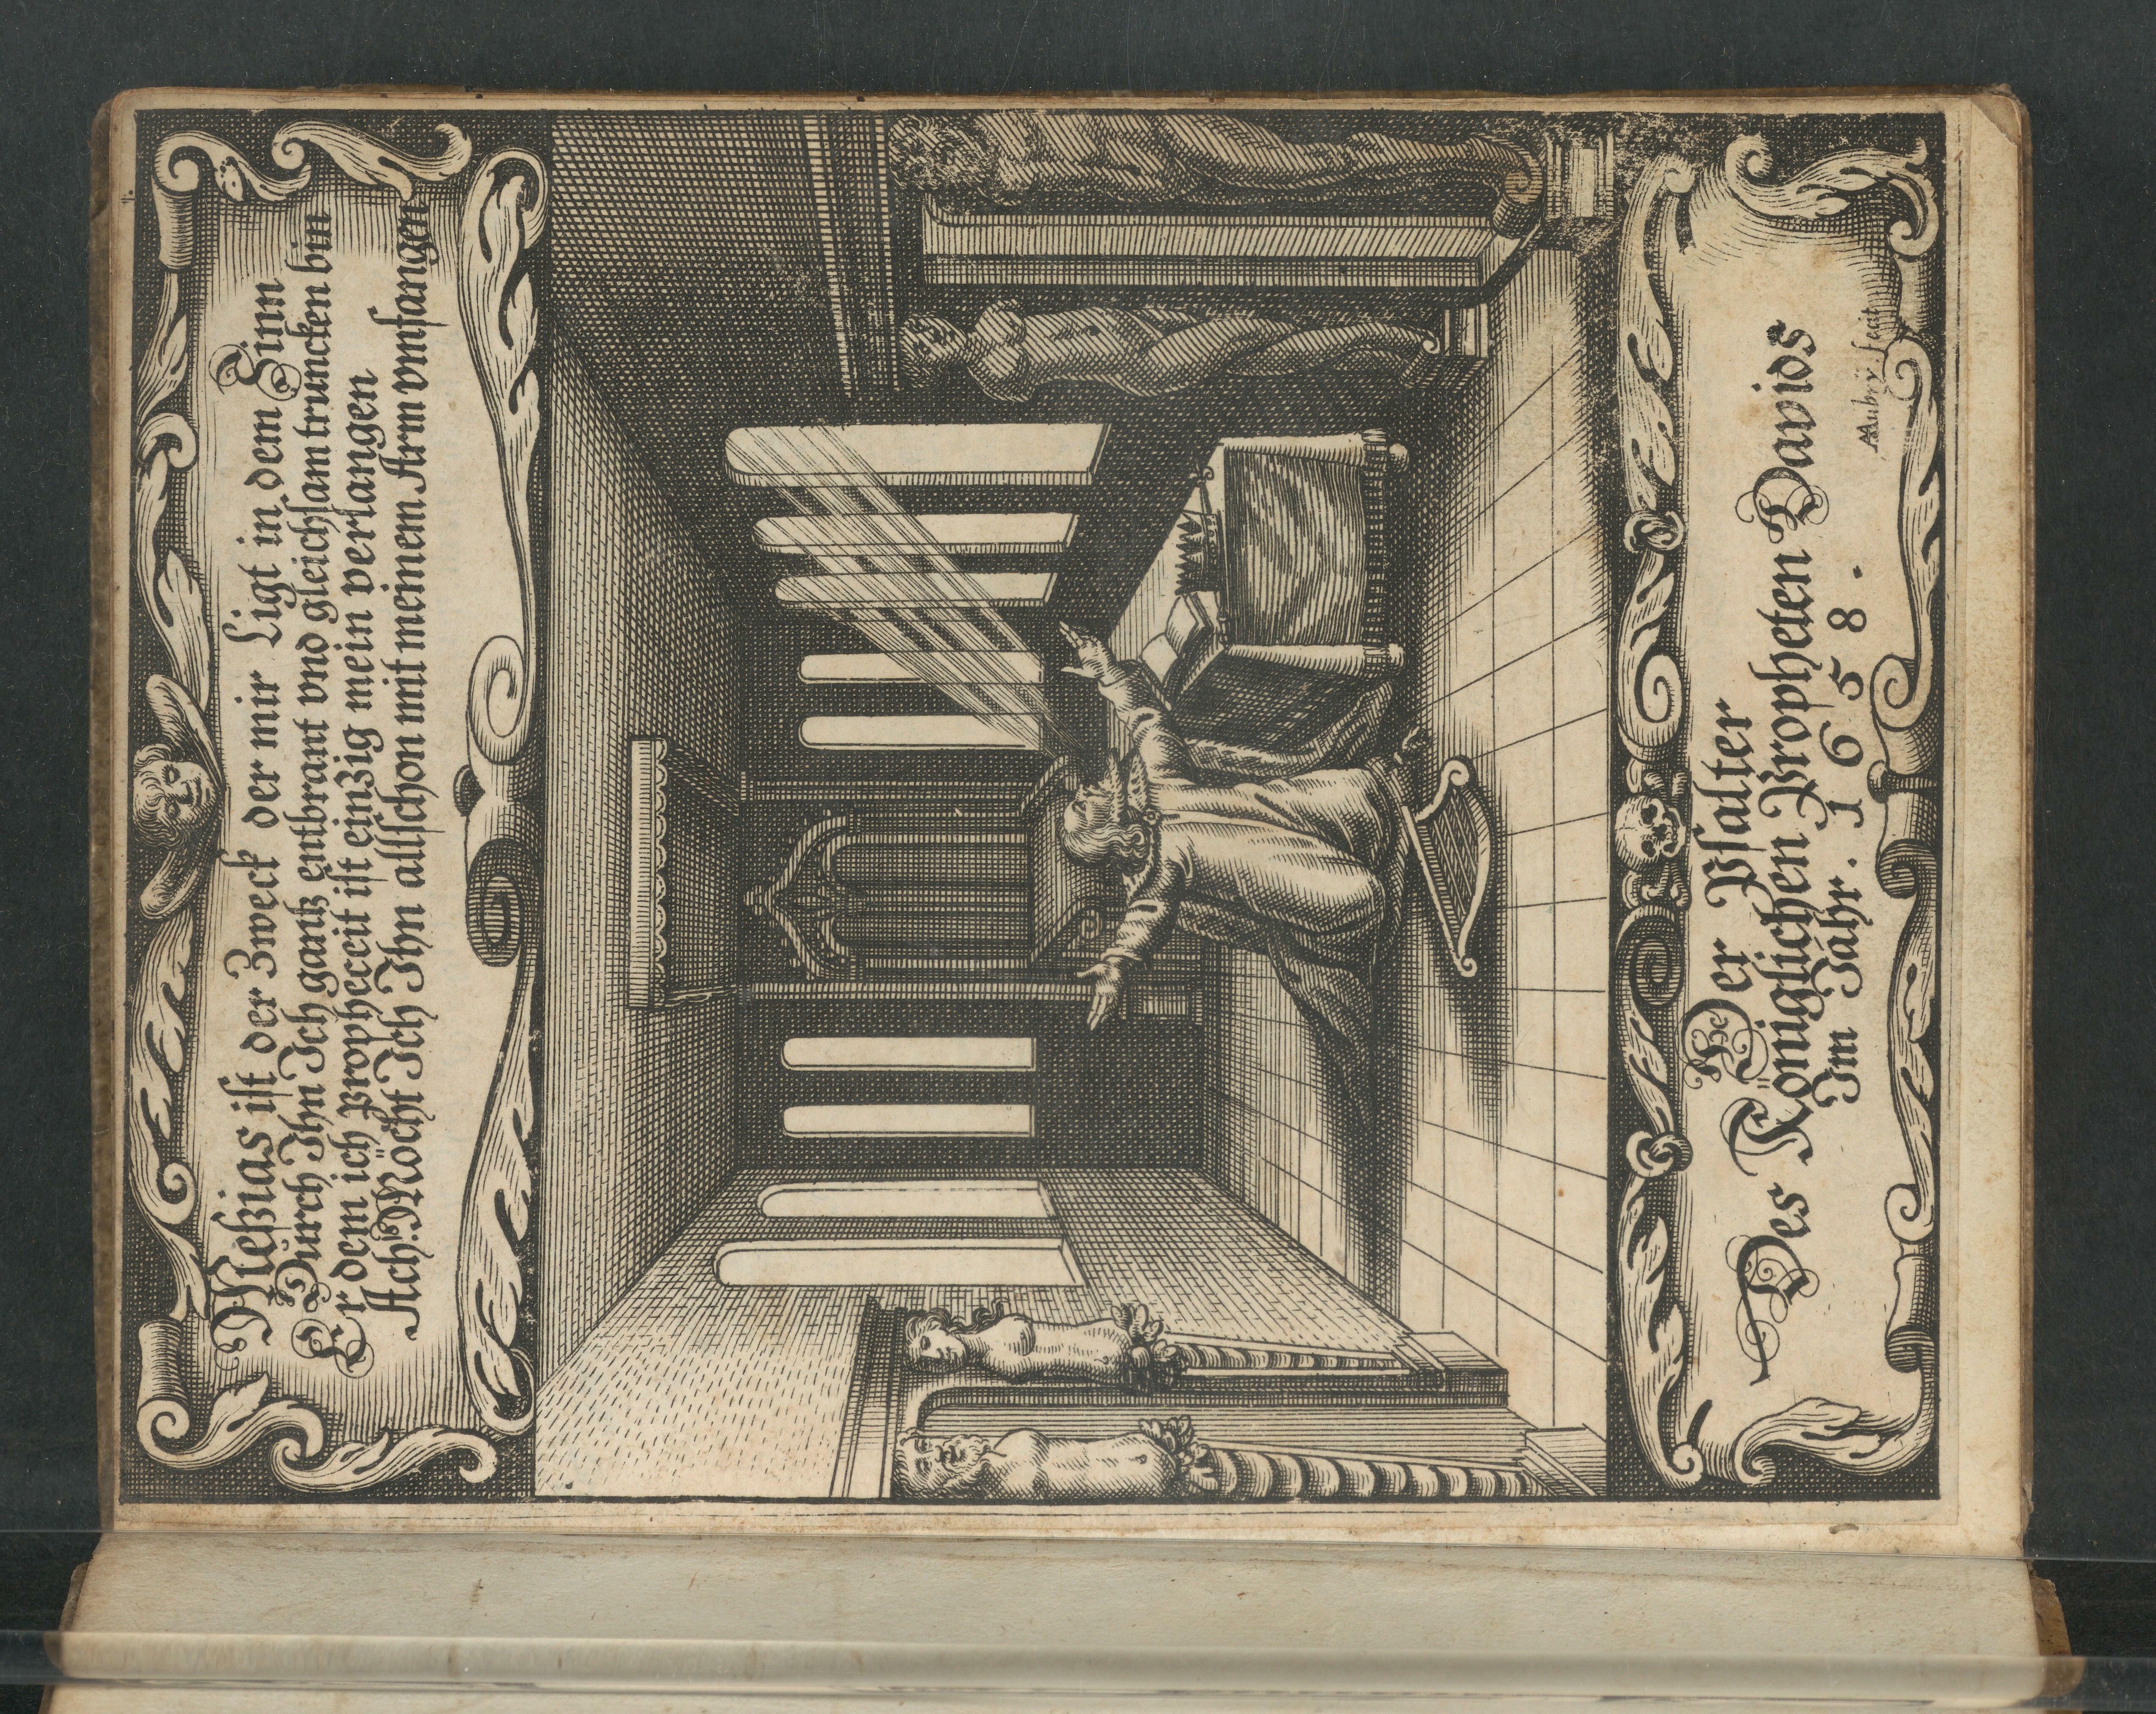 Meßias ist der Zweck der mir Ligt in dem Sinn
Durch Ihn Ich gantz entbrant vnd gleichsam truncken bin
Er dem ich Propheceit ist einzig mein verlangen
Ach! Möcht Ich Ihn allschon mit meinem Arm vmfangen
Der Psalter
Des Königlichen Propheten Davids
Im Jahr. 1658.
AAubry fecit